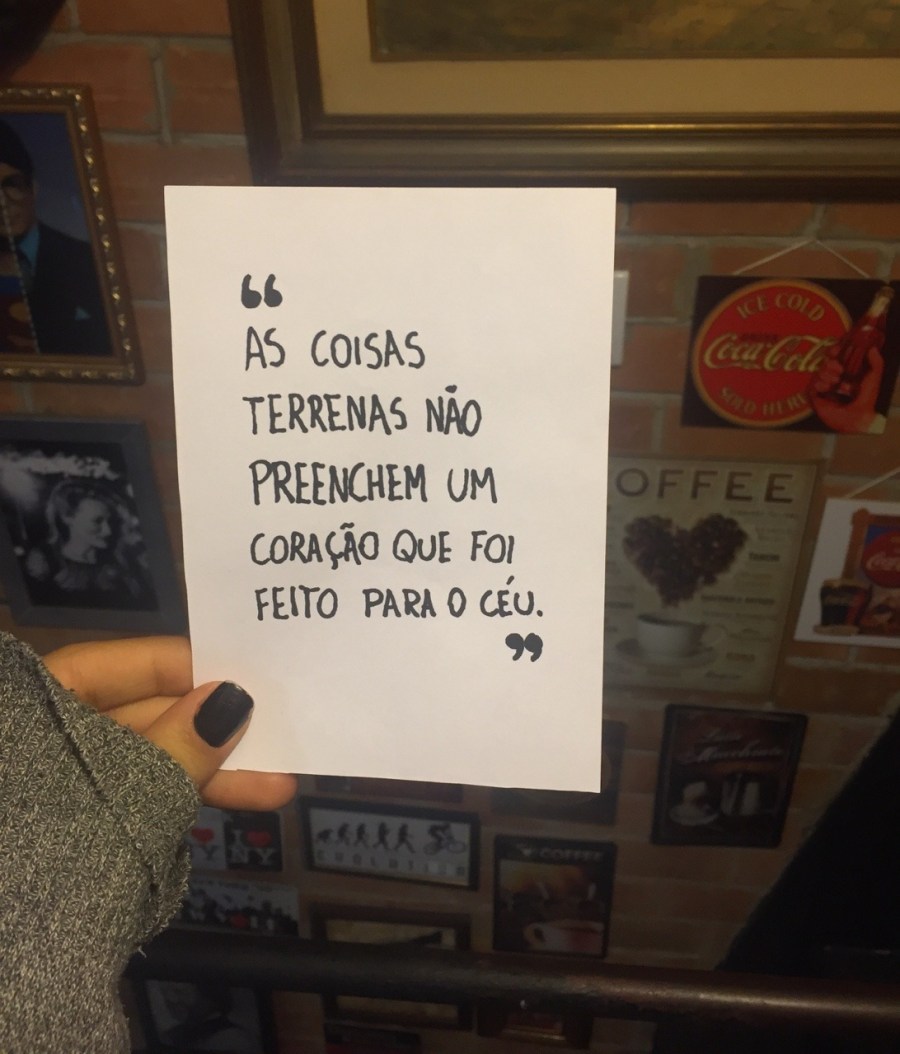 “
AS COISAS
TERRENAS NÃO
PREENCHEM UM
CORAÇÃO QUE FOI
FEITO PARA O CÉU.
”
ICE COLD
Coca-Cola
SOLD HERE
OFFEE
I ♥
NY
EVOLUTION
COFFEE